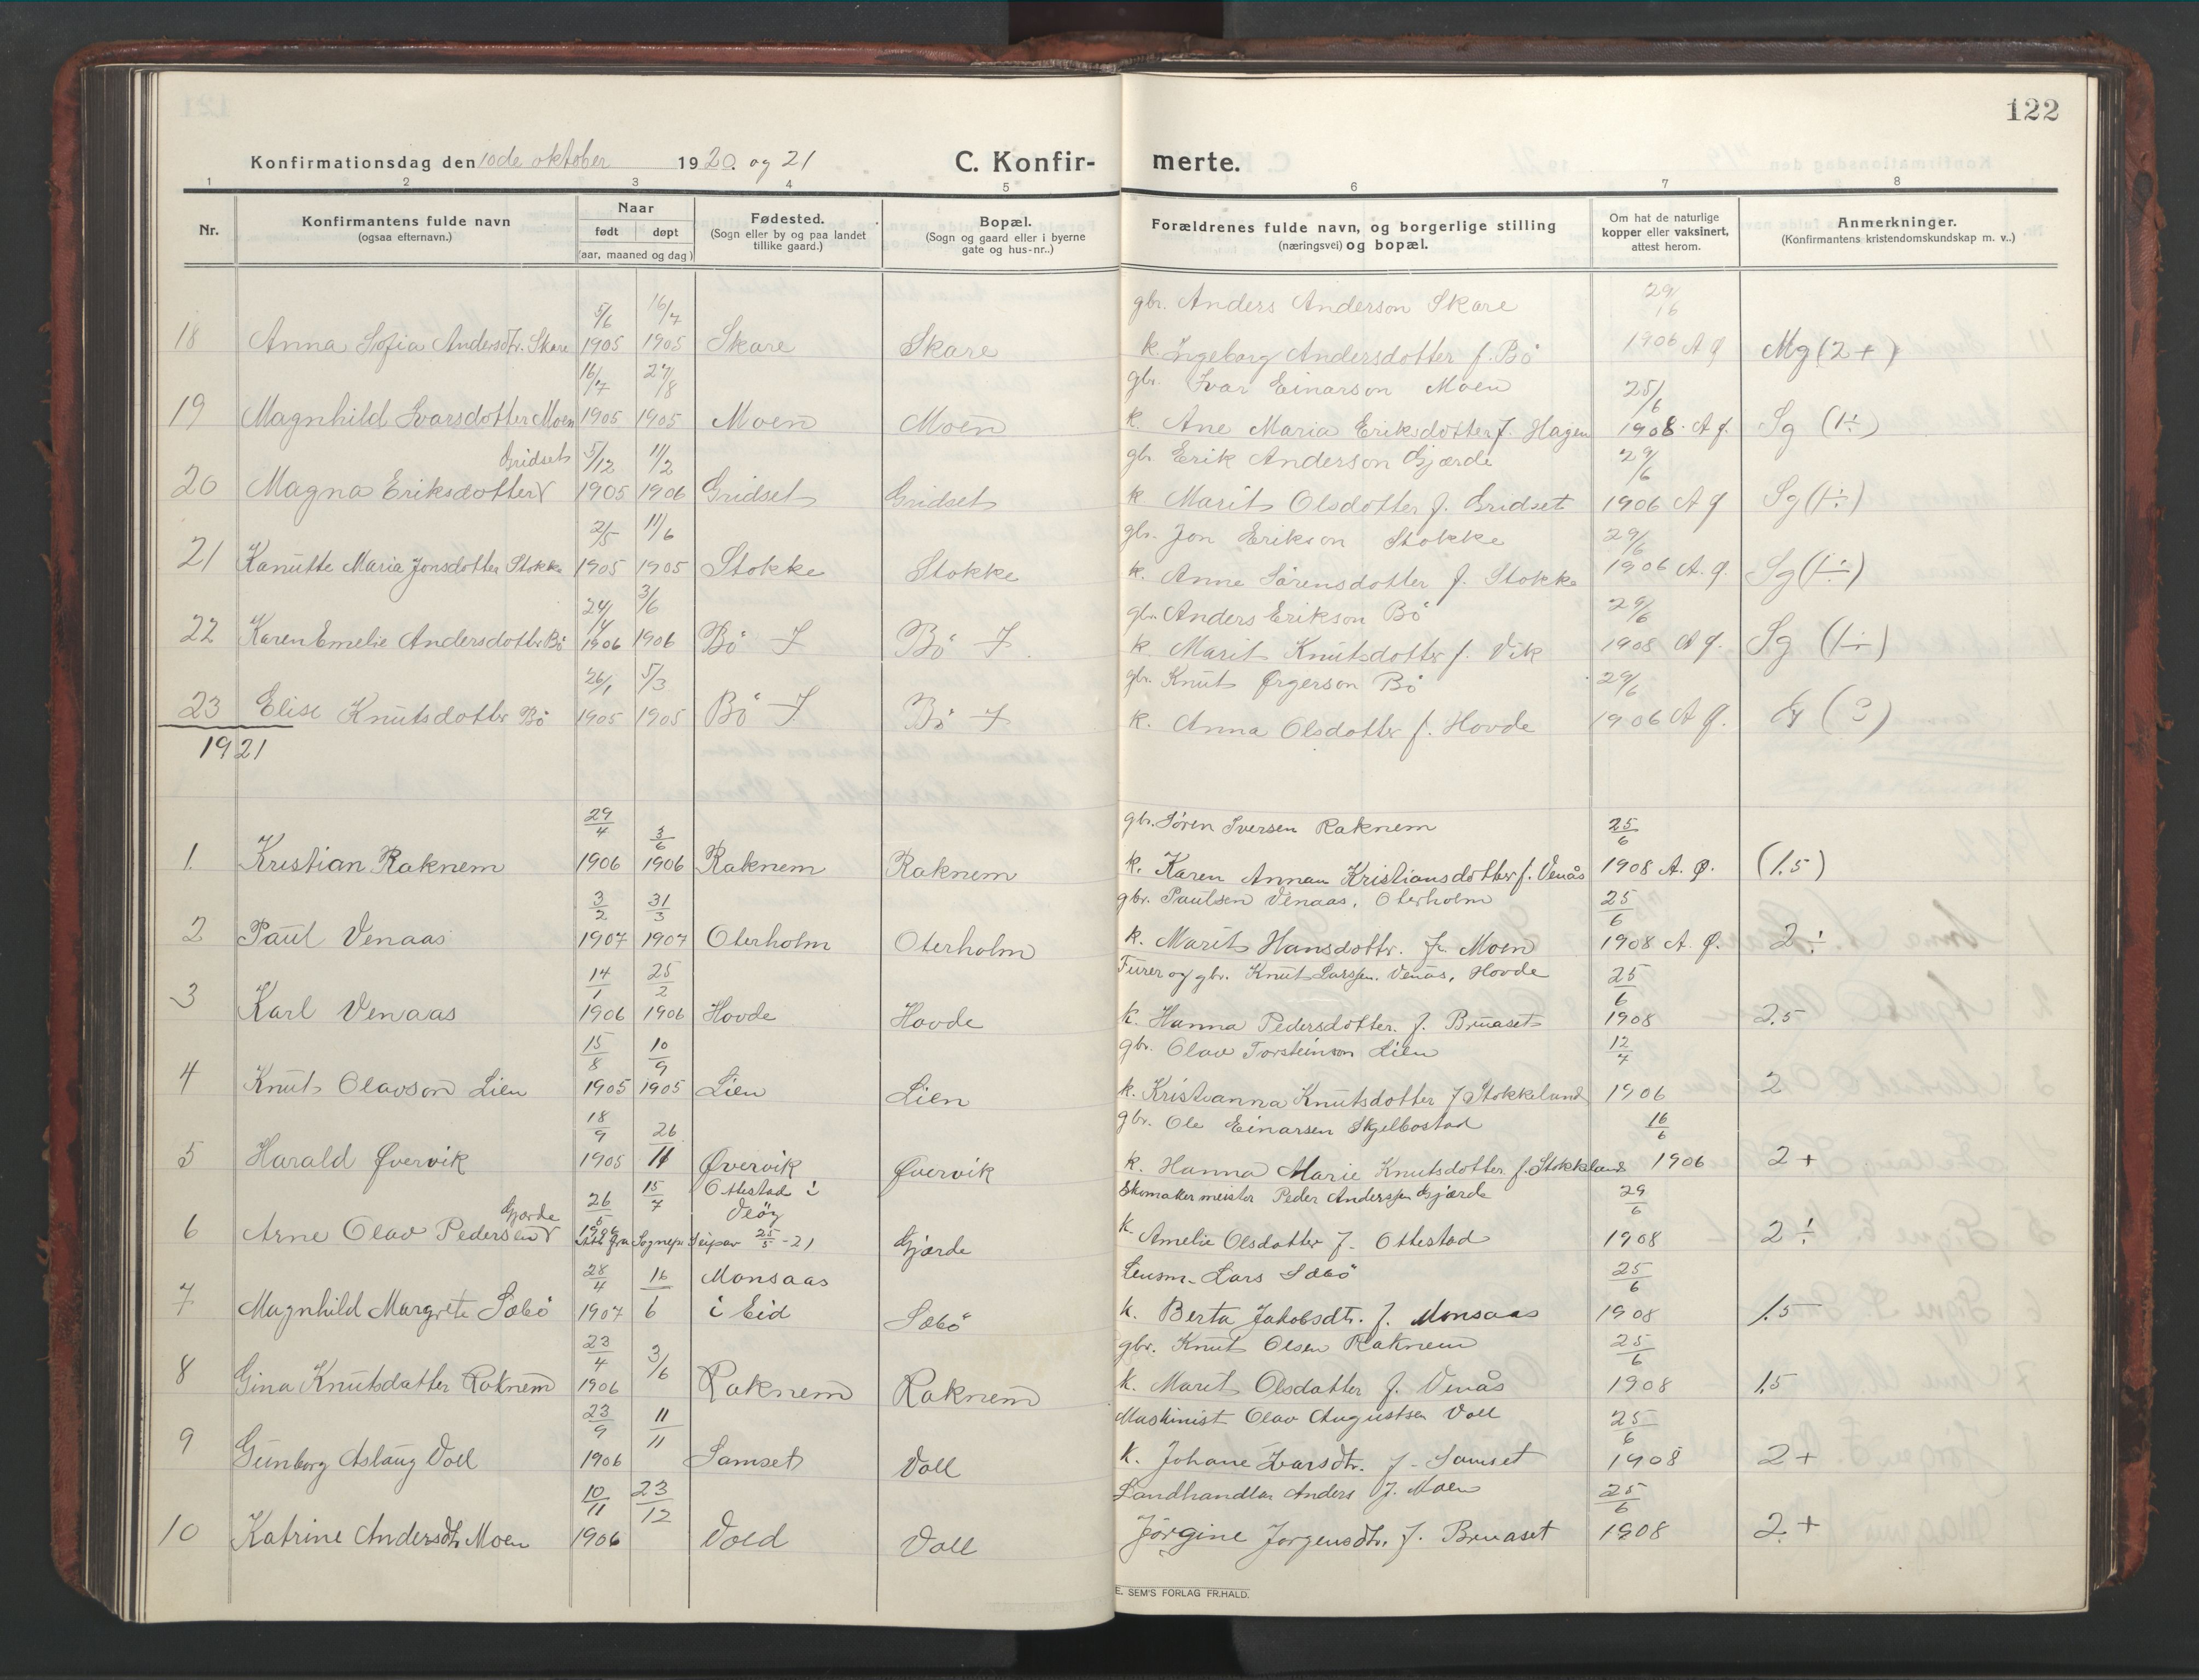 122
Konfirmationsdag den 10de oktober 1920. og 21 C. Konfir- merte.
1 2 3 4 5 6 7 8
Nr. Konfirmantens fulde navn (ogsaa efternavn.) Naar født døpt (aar, maaned og dag) Fødested. (Sogn eller by og paa landet tillike gaard.) Bopæl. (Sogn og gaard eller i byerne gate og hus-nr..) Forældrenes fulde navn, og borgerlige stilling (næringsvei) og bopæl. Om hat de naturlige kopper eller vaksinert, attest herom. Anmerkninger. (Konfirmantens kristendomskundskap m. v..)
5/6 16/7 gbr. Anders Anderson Skare 29/6
18 Anna Sofia Andersdtr. Skare 1905 1905 Skare Skare k. Ingeborg Andersdotter f. Bö 1906 A Ø Mg (2+)
16/7 27/8 gbr. Ivar Einarson Moen 25/6
19 Magnhild Ivarsdotter Moen 1905 1905 Moen Moen k. Ane Maria Eriksdotter f. Hagen 1908. A Ø. Sg (1÷)
Gridset 5/12 11/2 gbr Erik Anderson Gjærde 29/6
20 Magna Eriksdotter 1905 1906 Gridset Gridset k Marit Olsdotter f. Gridset 1906 A Ø Sg (1÷)
2/5 11/6 gbr. Jon Erikson Stokke 29/6
21 Kanutte Maria Jonsdotter Stokke 1905 1905 Stokke Stokke k. Anne Sörensdotter f. Stokke 1906 A. Ø. Sg (1÷)
24/4 3/6 gbr. Anders Erikson Bö 29/6
22 Karen Emelie Andersdotter Bö 1906 1906 Bö I Bö I. k. Marit Knutsdotter f. Vik 1908 A Ø. Sg (1÷)
26/1 5/3 gbr. Knut Ørgerson Bö 29/6
23 Elise Knutsdotter Bö 1905 1905 Bö I Bö I k. Anna Olsdotter f. Hovde 1906 A Ø. (3)
1921
29/4 3/6 gbr. Sören Iversen Raknem 25/6
1. Kristian Raknem 1906 1906 Raknem Raknem k. Karen Annan Kristiansdotter f. Venås 1908 A. Ø. (1.5)
3/2 31/3 gbr. Paulsen Venaas, Oterholm 25/6
2 Paul Venaas 1907 1907 Oterholm Oterholm k. Marit Hansdottr. f. Moen 1908 A. Ø. 2÷
14/1 25/2 Furer og gbr. Knut Larssen. Venås, Hovde 25/6
3 Karl Venaas 1906 1906 Hovde Hovde k. Hanna Pedersdotter. f. Bruaset 1908 2.5
15/8 10/9 gbr. Olav Torsteinson Lien 12/7
4 Knut Olavson Lien 1905 1905 Lien Lien k. Kristianna Knutsdotter f Stokkeland 1906 2
18/9 26/11 gbr. Ole Einarsen Skjelbostad 16/6
5 Harald Øvervik 1905 Øvervik Øvervik k. Hanna Marie Knutsdotter f. Stokkeland 1906 2+
Gjærde 26/5 15/7 Ottestad i Veöy Skomakermeister Peder Anderssen Gjærde 29/6
6 Arne Olav Pedersen 1906 Gjærde k Amelie Olsdatter f. Ottestad 1908 2÷
Att. fra Sognepr 25/5-21
28/4 16/6 Monsaas Lensm. Lars Sæbö 25/6
7 Magnhild Margrete Sæbö 1907 i Eid Sæbö k. Berta Jakobsdtr. f. Monsaas 1908 1.5
23/4 3/6 gbr. Knut Olsen Raknem 25/6
8 Gina Knutsdatter Raknem 1906 Raknem Raknem k. Marit Olsdatter f. Venås 1908 1,5
23/9 11/11 Maskinist Olav Augustsen Voll 25/6
9 Gunborg Aslaug Voll 1906 Samset Voll k. Johane Ivarsdtr. f. Samset 1908 2+
10/11 23/12 Landhandlar Anders J. Moen 25/6
10 Katrine Andersdtr Moen 1906 Vold Voll Jörgine Jorgensdtr. f. Bruaset 1908 2+
E. SEM'S FORLAG FR.HALD.